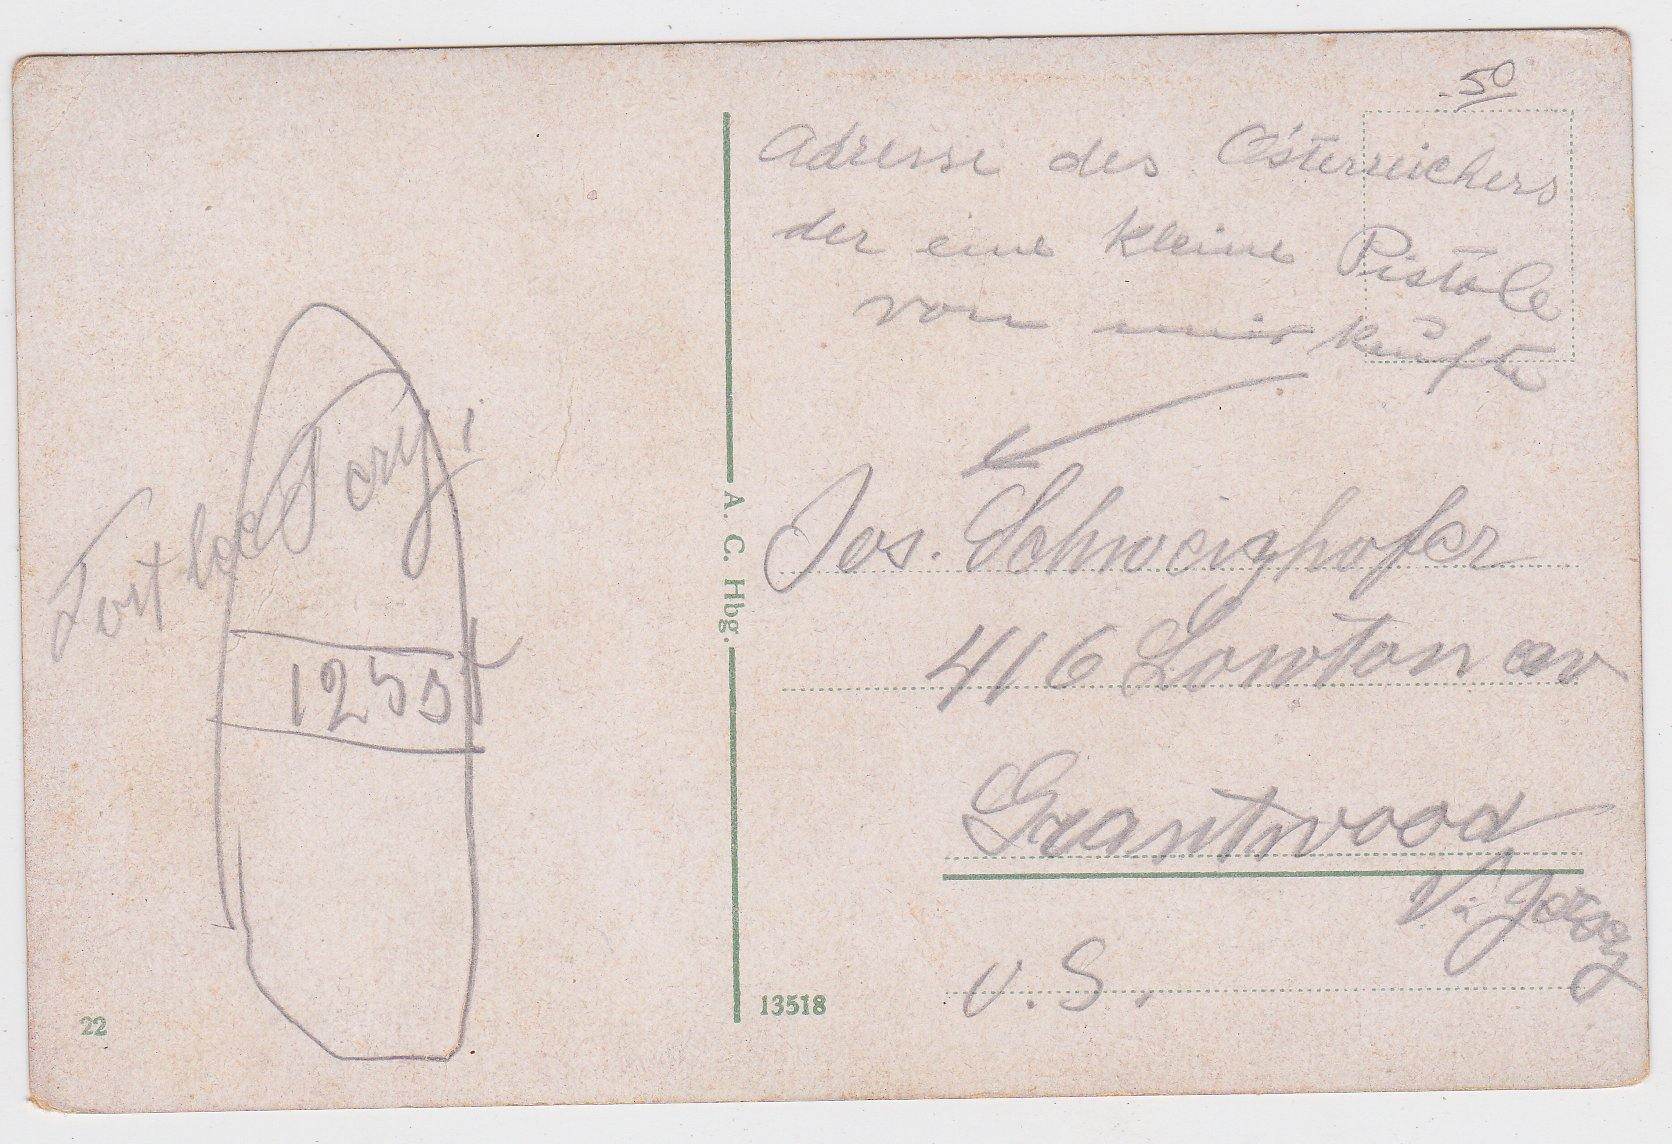 .50
Adresse des Österreichers
der eine kleine Pistole
von mir kaufte
Fort lee Fery!
125 st
A. C. Hbg.
Jos. Schweighofer
416 Lowton av
Grantwood
N. Jersey
U. S.
13518
22